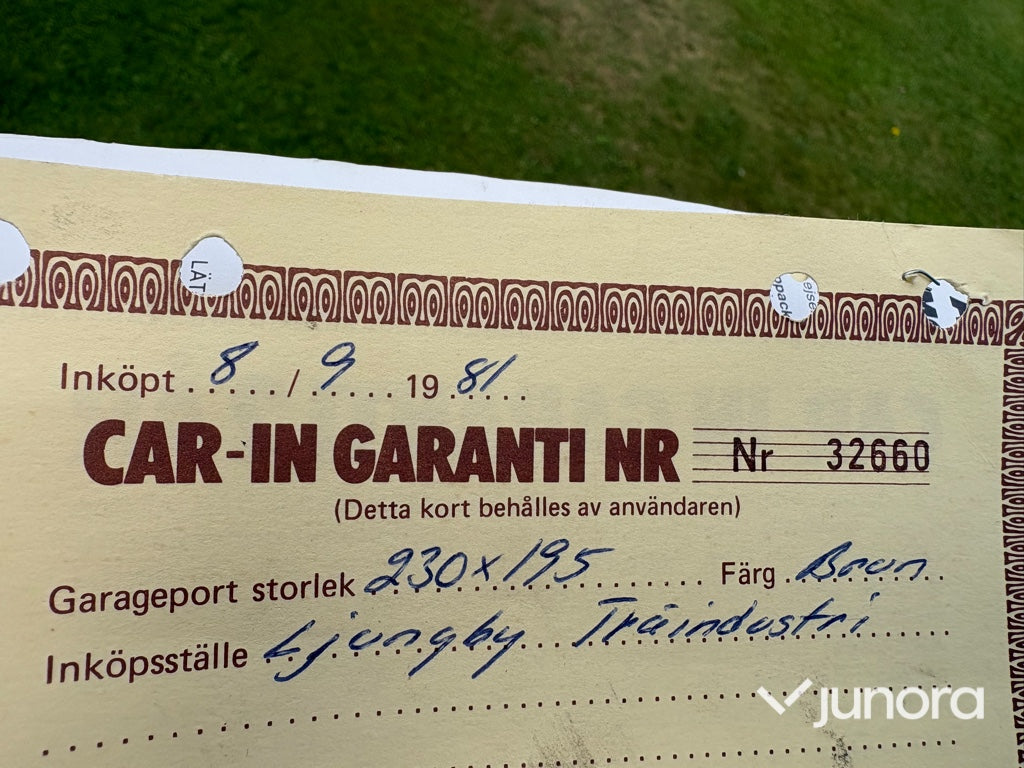 LÄT
else
opack
Inköpt 8 / 9 19 81
CAR-IN GARANTI NR Nr 32660
(Detta kort behålles av användaren)
Garageport storlek 230x195 Färg Brun
Inköpsställe Ljungby Träindustri
junora